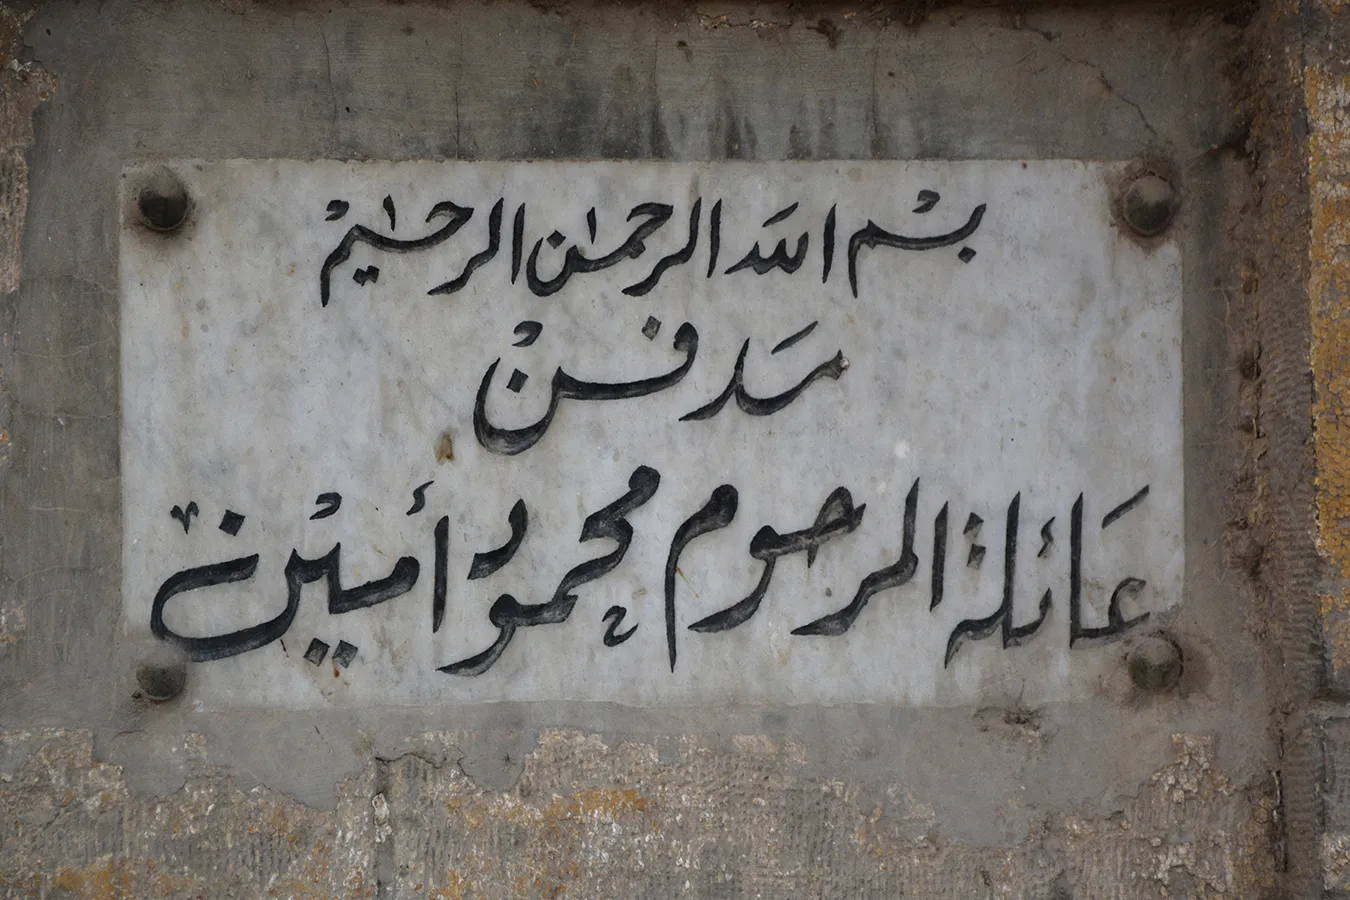 بسم الله الرحمن الرحيم
مدفن
عائلة المرحوم محمود أمين